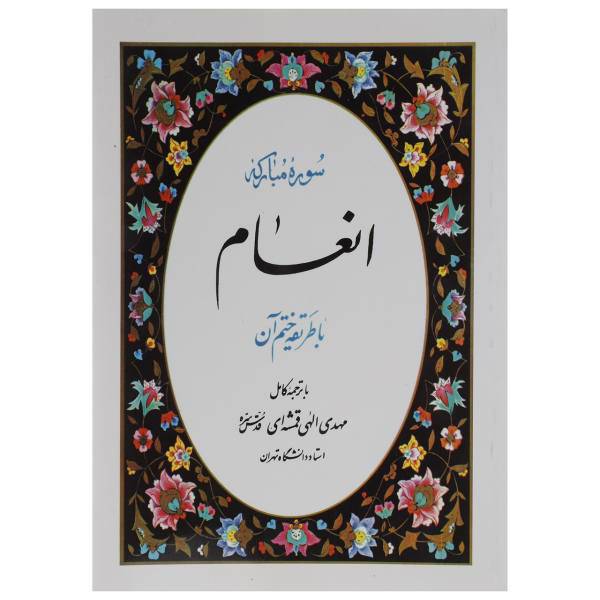 سورهٔ مبارکه
انعام
با طریقه ختم آن
با ترجمهٔ کامل
مهدی الهی قمشه‌ای قدّس سرّه
استاد دانشگاه تهران